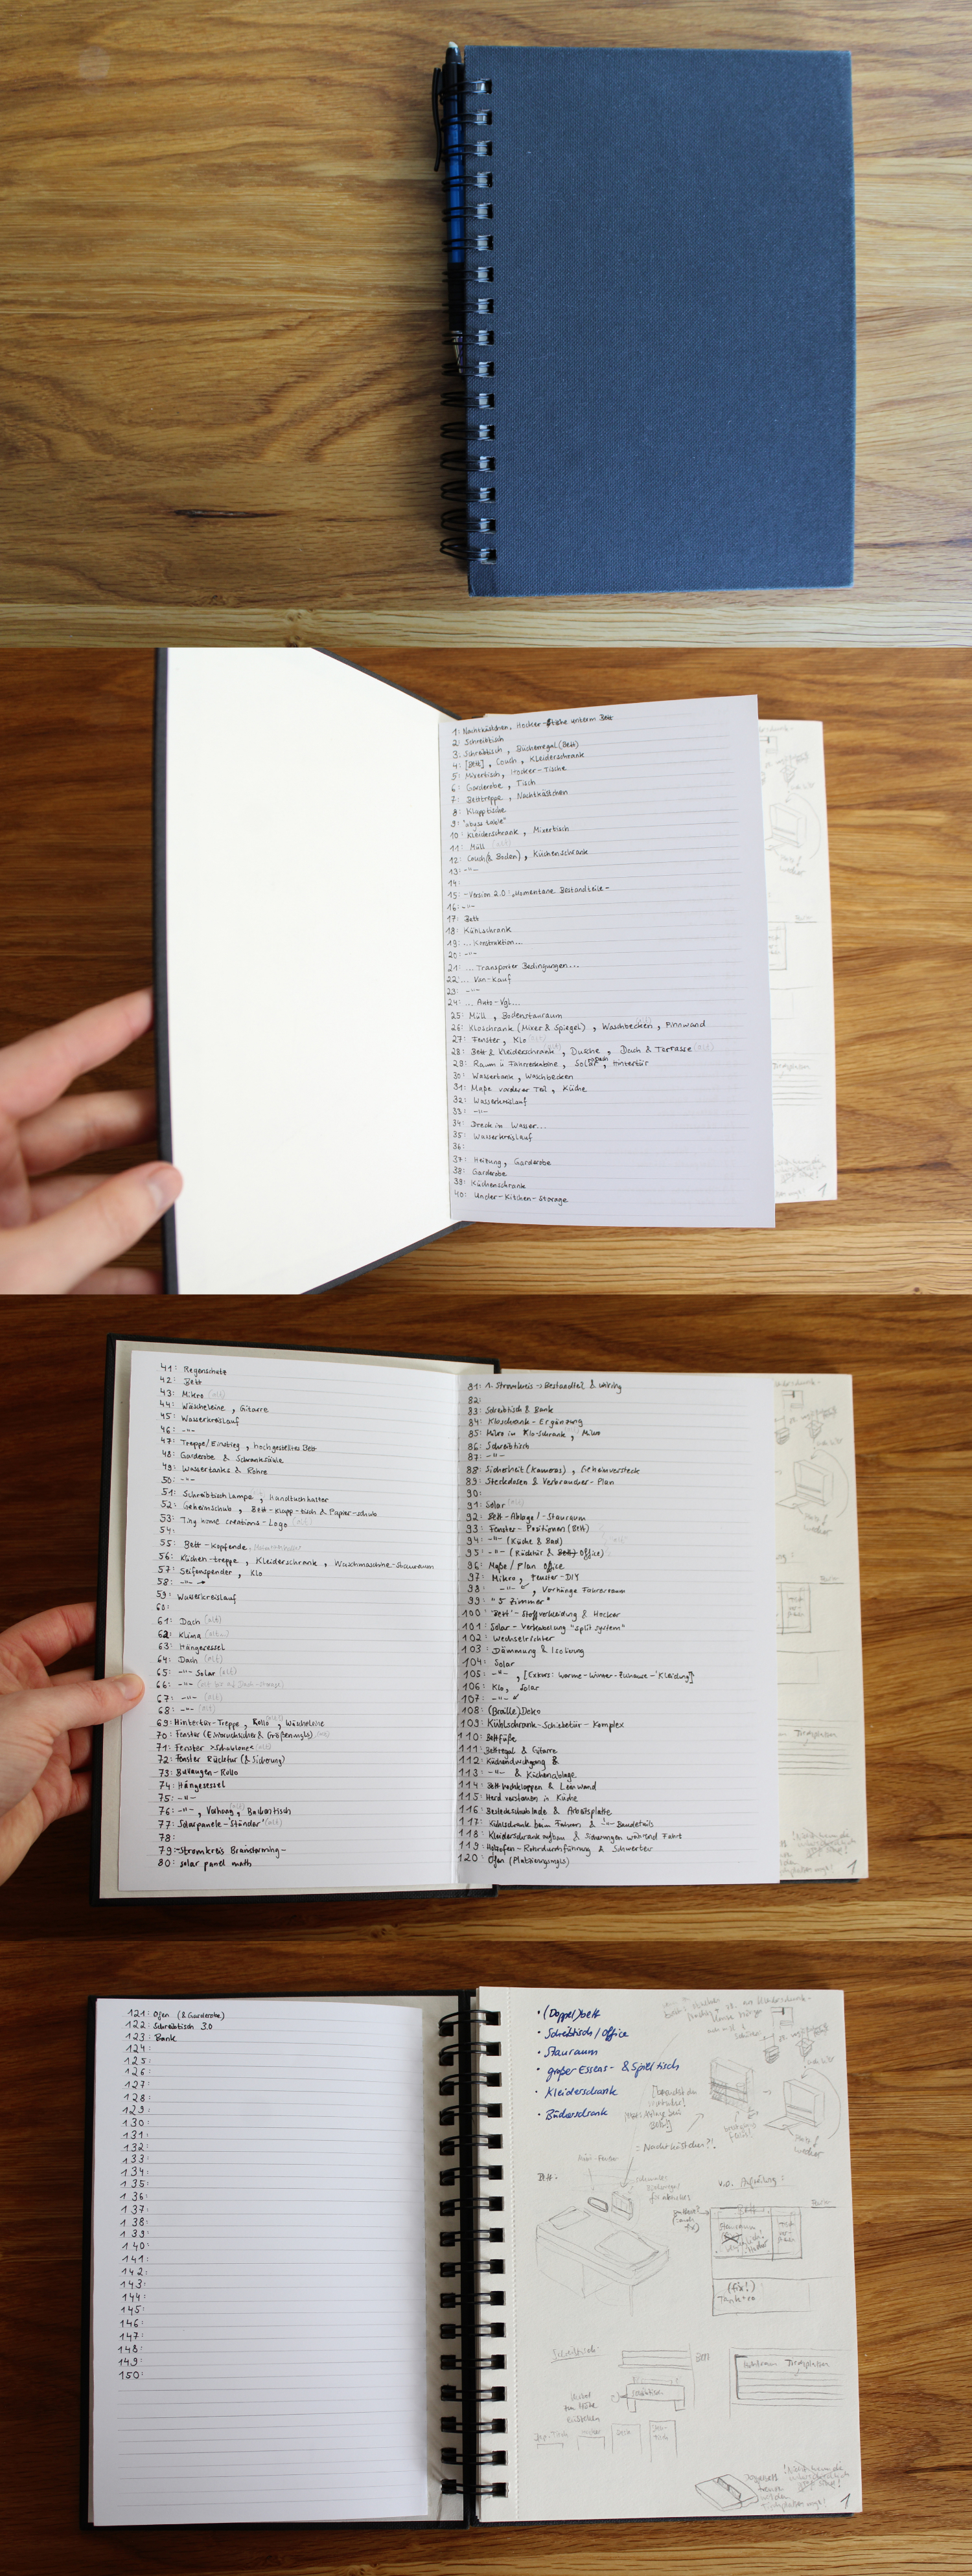 1: Nachtkästchen, Hocker-Tische unterm Bett
2: Schreibtisch
3: Schreibtisch, Bücherregal (Bett)
4: [Bett], Couch, Kleiderschrank
5: Mixertisch, Hocker-Tische
6: Garderobe, Tisch
7: Betttreppe, Nachtkästchen
8: Klapptische
9: "abyss table"
10: Kleiderschrank, Mixertisch
11: Müll (alt)
12: Couch(& Boden), Küchenschrank
13: -"-
14:
15: -Version 2.0: Momentane Bestandteile-
16: -"-
17: Bett
18: Kühlschrank
19: ... Konstruktion...
20: -"-
21: ... Transporter Bedingungen...
22: ... Van-Kauf
23: -"-
24: ... Auto-Vgl...
25: Müll, Bodenstauraum
26: Kloschrank (Mixer & Spiegel), Waschbecken, Pinnwand
27: Fenster, Klo
28: Bett & Kleiderschrank, Dusche, Dach & Terrasse (alt)
29: Raum ü Fahrerkabine, Solar, Hintertür
30: Wassertank, Waschbecken
31: Maße vorderer Teil, Küche
32: Wasserkreislauf
33: -"-
34: Dreck im Wasser...
35: Wasserkreislauf
36:
37: Heizung, Garderobe
38: Garderobe
39: Küchenschrank
40: Under-Kitchen-Storage
41: Regenschutz
42: Bett
43: Mikro (alt)
44: Wäscheleine, Gitarre
45: Wasserkreislauf
46: -"-
47: Treppe/Einstieg, hochgestelltes Bett
48: Garderobe & Schranksäule
49: Wassertanks & Rohre
50: -"-
51: Schreibtischlampe, Handtuchhalter
52: Geheimschub, Bett-Klapp-tisch & Papier-schub
53: Tiny home creations-Logo (alt)
54:
55: Bett-Kopfende
56: Küchen-treppe, Kleiderschrank, Waschmaschine-Stauraum
57: Seifenspender, Klo
58: -"-
59: Wasserkreislauf
60:
61: Dach (alt)
62: Klima (alt...)
63: Hängesessel
64: Dach (alt)
65: -"- Solar (alt)
66: -"-
67: -"- (alt)
68: -"- (alt)
69: Hintertür-Treppe, Rollo, Wäscheleine
70: Fenster (Einbruchsicher & Größenvgls)
71: Fenster >Schablone<
72: Fenster Rücktür (& Sicherung)
73: Bullaugen-Rollo
74: Hängesessel
75: -"-
76: -"-, Vorhang, Barhochtisch
77: Solarpanele-'Ständer' (alt)
78:
79: -Stromkreis Brainstorming-
80: solar panel math
81: 1. Stromkreis -> Bestandteil & wiring
82:
83: Schreibtisch & Bank
84: Kloschrank-Ergänzung
85: Mikro in Klo-Schrank, Mikro
86: Schreibtisch
87: -"-
88: Sicherheit (Kameras), Geheimversteck
89: Steckdosen & Verbraucher-Plan
90:
91: Solar (alt)
92: Bett-Ablage/-Stauraum
93: Fenster-Positionen (Bett)
94: -"- (Küche & Bad)
95: -"- (Rücktür & Bett) Office)
96: Maße/Plan Office
97: Mikro, Fenster-DIY
98: -"-, Vorhänge Fahrerraum
99: "5 Zimmer"
100: 'Bett'-Stoffverkleidung & Hocker
101: Solar-Verkabelung "split system"
102: Wechselrichter
103: Dämmung & Isolierung
104: Solar
105: -"-, [Exkurs: Warme-Winter-Zuhause-'Kleidung']
106: Klo, Solar
107: -"-
108: (Braille) Deko
109: Kühlschrank-Schiebetür-Komplex
110: Bettfüße
111: Bettregal & Gitarre
112: Küchendurchgang &
113: -"- & Küchenablage
114: Bett hochklappen & Leinwand
115: Herd verstauen in Küche
116: Besteckschublade & Arbeitsplatte
117: Kühlschrank beim Fahren & -"- Baudetails
118: Kleiderschrankaufbau & Sicherungen während Fahrt
119: Holzofen-Rohrdurchführung &
120: Ofen (Platzierungsvgls)
121: Ofen (& Garderobe)
122: Schreibtisch 3.0
123: Bank
124:
125:
126:
127:
128:
129:
130:
131:
132:
133:
134:
135:
136:
137:
138:
139:
140:
141:
142:
143:
144:
145:
146:
147:
148:
149:
150:
• (Doppel)bett
• Schreibtisch/office
• Stauraum
• großer Essens- & Spieltisch
• Kleiderschrank
• Bücherschrank
= Nachtkästchen?!
Bett:
v.o. Aufteilung:
Bett
Stauraum
(fix!)
Schreibtisch:
Bett
Schreibtisch
1